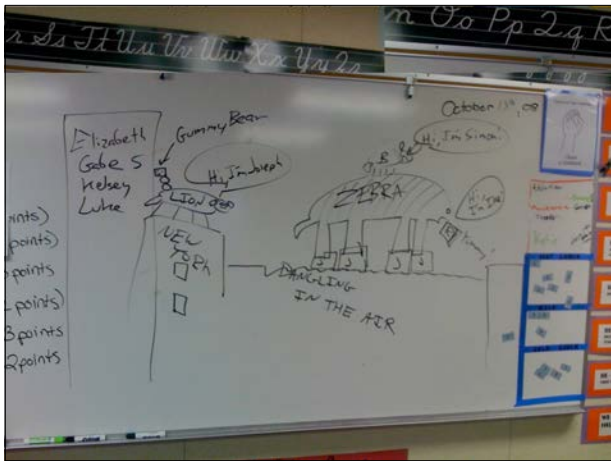 r Ss Tt Uu Vv Ww Xx Yy Zz
n Oo Pp Qq R
October 13th, 08
Elizabeth
Gabe S
Kelsey
Luke
Gummy Bear
Hi, I'm Joseph
Hi, I'm Simon!
LION
ZEBRA
NEW
YORK
J J J J
DANGLING
IN THE AIR
points)
points)
points
points)
3 points
2 points